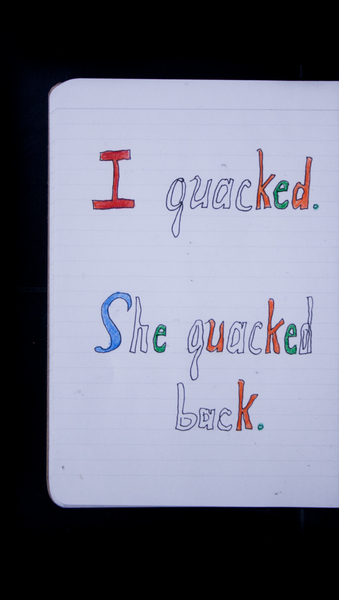 I quacked.
She quacked
back.